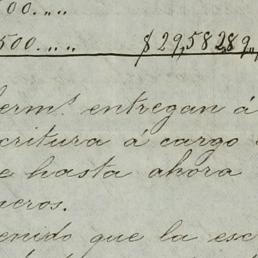 500.....
500.....   $29,582.89,,
herm.s entregan á
critura á cargo
e hasta ahora
neros.
enido que la esc